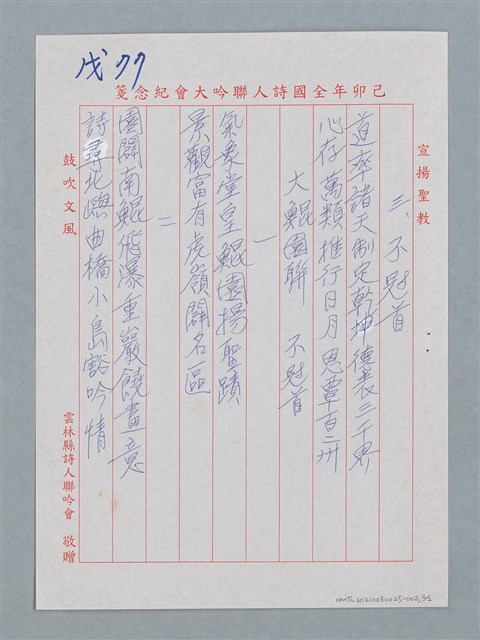 戊77
己卯年全國詩人聯吟大會紀念箋
宣揚聖教
三、不冠首
道率諸天制定乾坤德表三千界
心存萬類推行日月恩覃百二州
大鯤園聯 不冠首
一
氣象堂皇鯤園揚聖蹟
景觀富有虎嶺闢名區
二
園闢南鯤飛瀑重巖饒畫意
詩尋北嶼曲橋小島豁吟情
鼓吹文風
雲林縣詩人聯吟會 敬贈